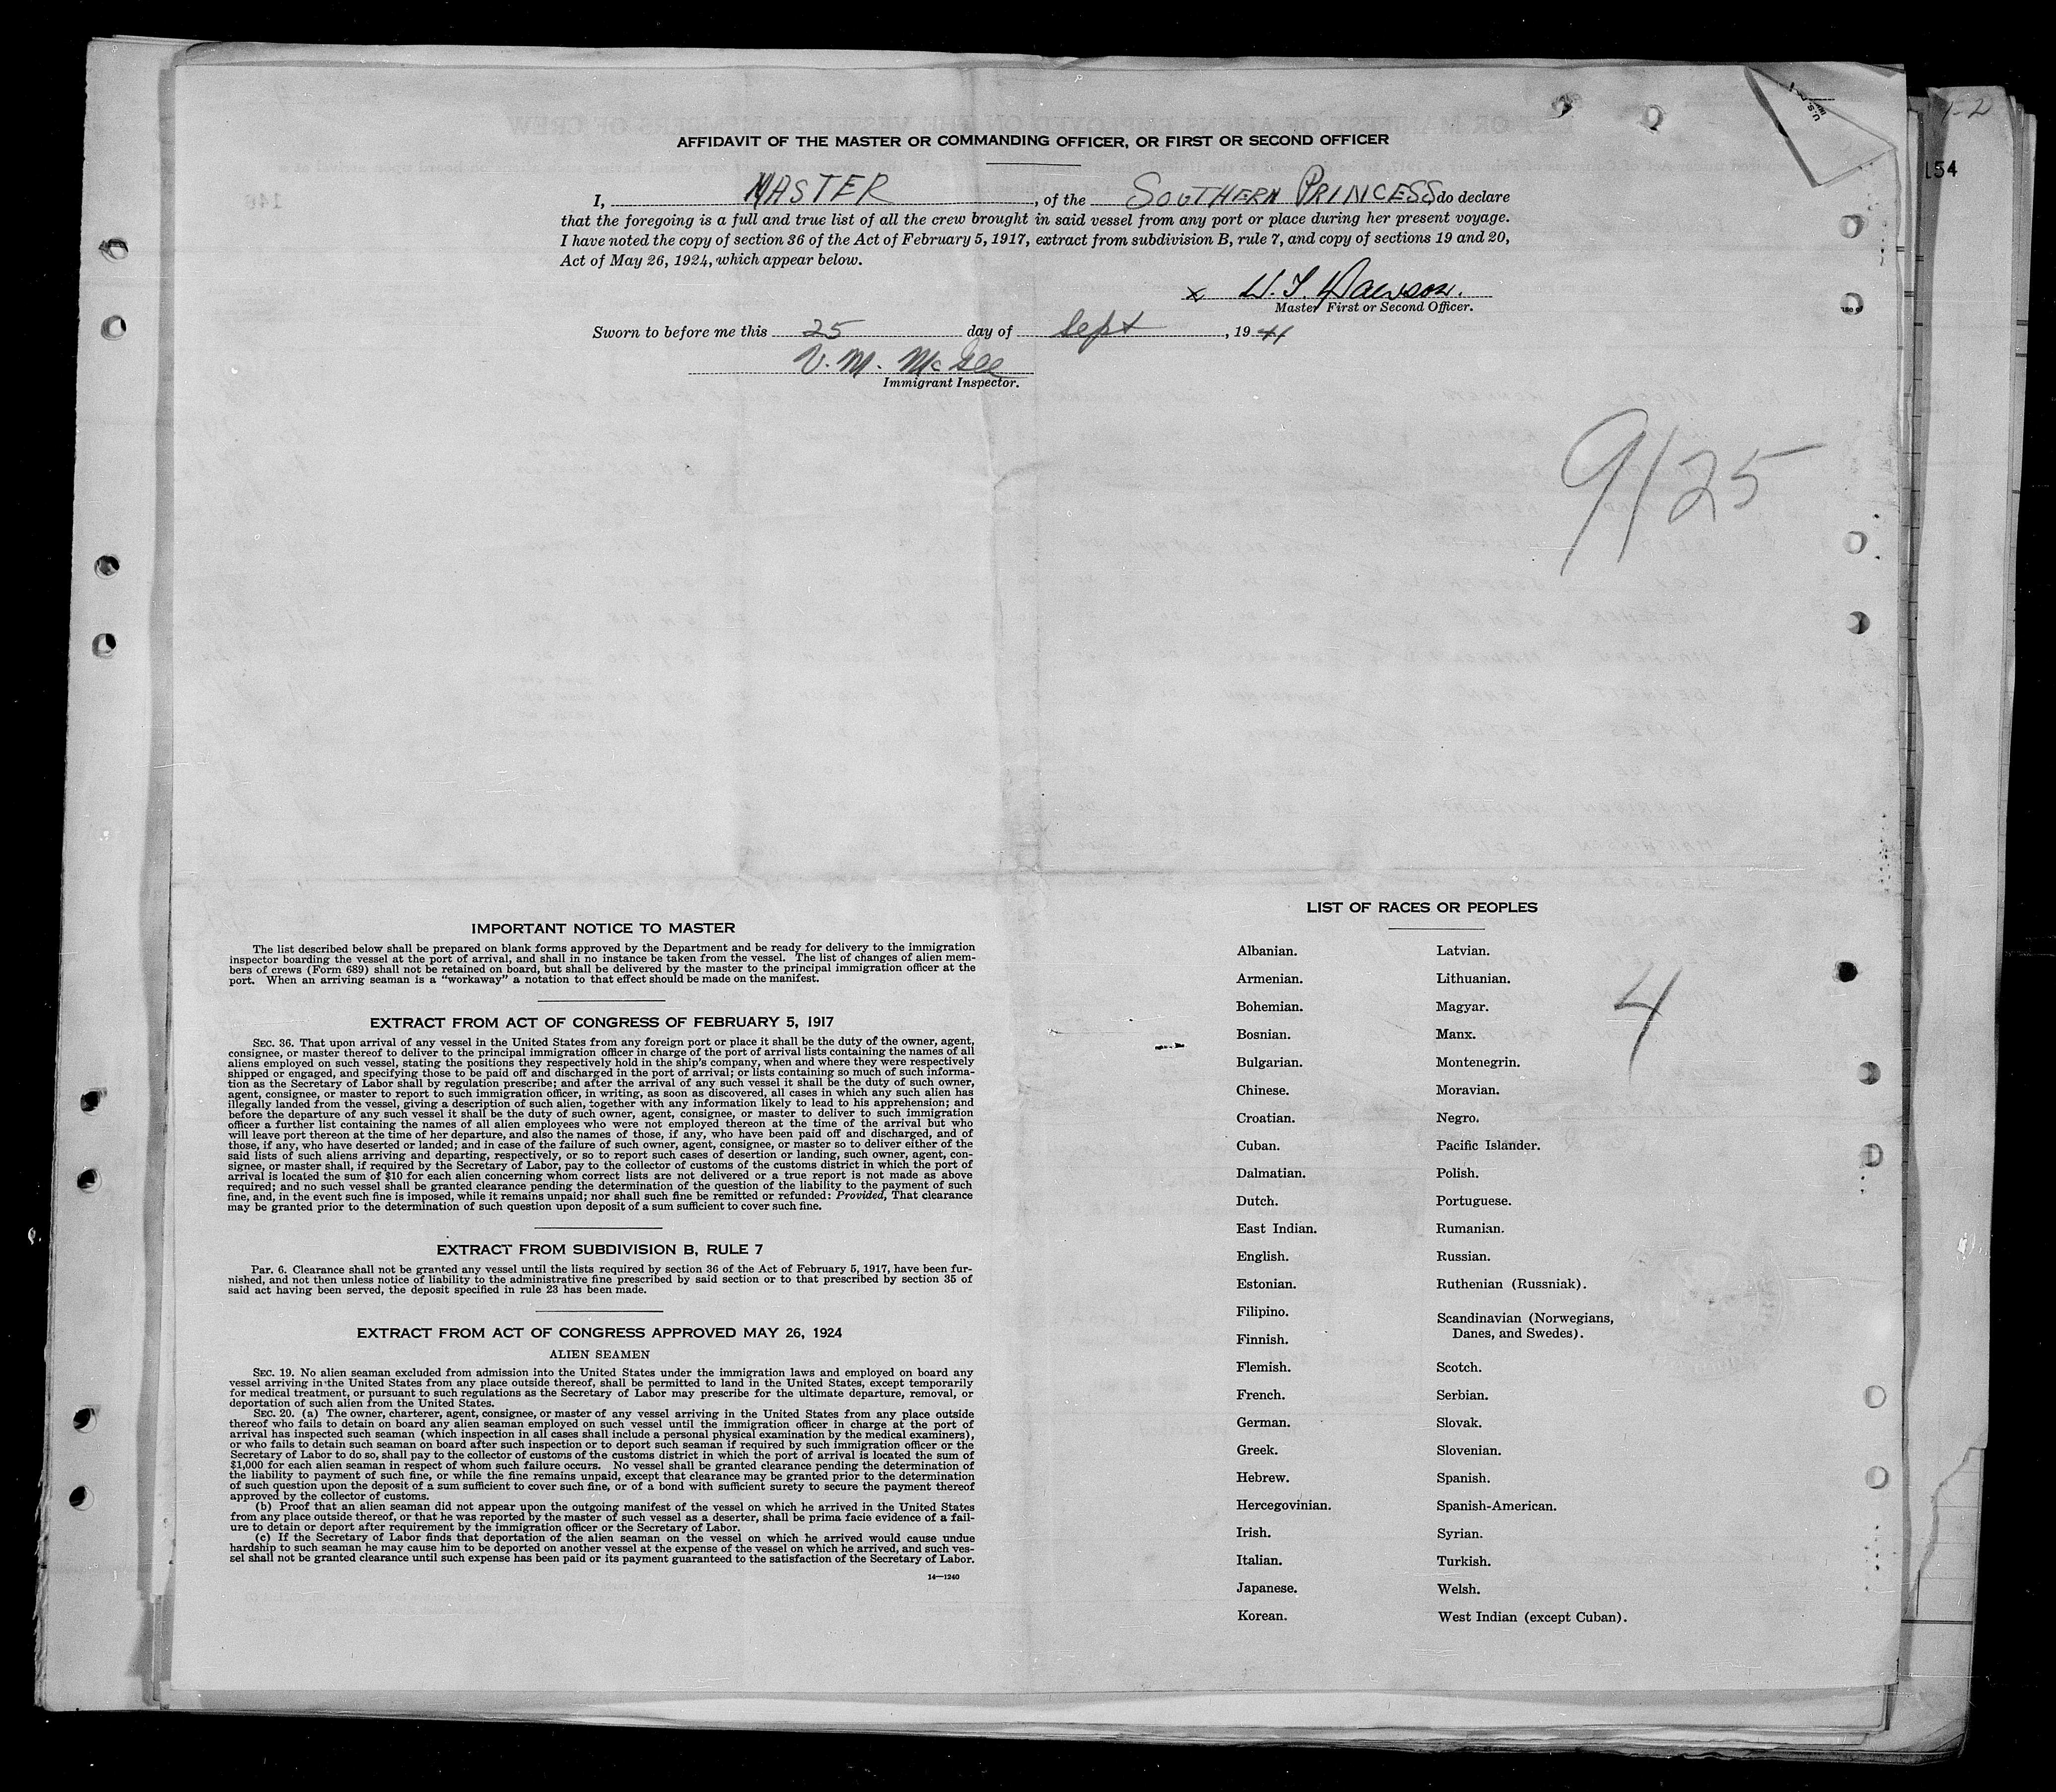 AFFIDAVIT OF THE MASTER OR COMMANDING OFFICER, OR FIRST OR SECOND OFFICER
I, MASTER, of the SOUTHERN PRINCESS do declare
that the foregoing is a full and true list of all the crew brought in said vessel from any port or place during her present voyage.
I have noted the copy of section 36 of the Act of February 5, 1917, extract from subdivision B, rule 7, and copy of sections 19 and 20,
Act of May 26, 1924, which appear below.
x W. J. Dawson.
Master First or Second Officer.
Sworn to before me this 25 day of Sept, 1941
V. M. McGee
Immigrant Inspector.
9/25
154
IMPORTANT NOTICE TO MASTER
The list described below shall be prepared on blank forms approved by the Department and be ready for delivery to the immigration
inspector boarding the vessel at the port of arrival, and shall in no instance be taken from the vessel. The list of changes of alien mem-
bers of crews (Form 689) shall not be retained on board, but shall be delivered by the master to the principal immigration officer at the
port. When an arriving seaman is a "workaway" a notation to that effect should be made on the manifest.
EXTRACT FROM ACT OF CONGRESS OF FEBRUARY 5, 1917
SEC. 36. That upon arrival of any vessel in the United States from any foreign port or place it shall be the duty of the owner, agent,
consignee, or master thereof to deliver to the principal immigration officer in charge of the port of arrival lists containing the names of all
aliens employed on such vessel, stating the positions they respectively hold in the ship's company, when and where they were respectively
shipped or engaged, and specifying those to be paid off and discharged in the port of arrival; or lists containing so much of such informa-
tion as the Secretary of Labor shall by regulation prescribe; and after the arrival of any such vessel it shall be the duty of such owner,
agent, consignee, or master to report to such immigration officer, in writing, as soon as discovered, all cases in which any such alien has
illegally landed from the vessel, giving a description of such alien, together with any information likely to lead to his apprehension; and
before the departure of any such vessel it shall be the duty of such owner, agent, consignee, or master to deliver to such immigration
officer a further list containing the names of all alien employees who were not employed thereon at the time of the arrival but who
will leave port thereon at the time of her departure, and also the names of those, if any, who have been paid off and discharged, and of
those, if any, who have deserted or landed; and in case of the failure of such owner, agent, consignee, or master so to deliver either of the
said lists of such aliens arriving and departing, respectively, or so to report such cases of desertion or landing, such owner, agent, con-
signee, or master shall, if required by the Secretary of Labor, pay to the collector of customs of the customs district in which the port of
arrival is located the sum of $10 for each alien concerning whom correct lists are not delivered or a true report is not made as above
required; and no such vessel shall be granted clearance pending the determination of the question of the liability to the payment of such
fine, and, in the event such fine is imposed, while it remains unpaid; nor shall such fine be remitted or refunded: Provided, That clearance
may be granted prior to the determination of such question upon deposit of a sum sufficient to cover such fine.
EXTRACT FROM SUBDIVISION B, RULE 7
Par. 6. Clearance shall not be granted any vessel until the lists required by section 36 of the Act of February 5, 1917, have been fur-
nished, and not then unless notice of liability to the administrative fine prescribed by said section or to that prescribed by section 35 of
said act having been served, the deposit specified in rule 23 has been made.
EXTRACT FROM ACT OF CONGRESS APPROVED MAY 26, 1924
ALIEN SEAMEN
SEC. 19. No alien seaman excluded from admission into the United States under the immigration laws and employed on board any
vessel arriving in the United States from any place outside thereof, shall be permitted to land in the United States, except temporarily
for medical treatment, or pursuant to such regulations as the Secretary of Labor may prescribe for the ultimate departure, removal, or
deportation of such alien from the United States.
SEC. 20. (a) The owner, charterer, agent, consignee, or master of any vessel arriving in the United States from any place outside
thereof who fails to detain on board any alien seaman employed on such vessel until the immigration officer in charge at the port of
arrival has inspected such seaman (which inspection in all cases shall include a personal physical examination by the medical examiners),
or who fails to detain such seaman on board after such inspection or to deport such seaman if required by such immigration officer or the
Secretary of Labor to do so, shall pay to the collector of customs of the customs district in which the port of arrival is located the sum of
$1,000 for each alien seaman in respect of whom such failure occurs. No vessel shall be granted clearance pending the determination of
the liability to payment of such fine, or while the fine remains unpaid, except that clearance may be granted prior to the determination
of such question upon the deposit of a sum sufficient to cover such fine, or of a bond with sufficient surety to secure the payment thereof
approved by the collector of customs.
(b) Proof that an alien seaman did not appear upon the outgoing manifest of the vessel on which he arrived in the United States
from any place outside thereof, or that he was reported by the master of such vessel as a deserter, shall be prima facie evidence of a fail-
ure to detain or deport after requirement by the immigration officer or the Secretary of Labor.
(c) If the Secretary of Labor finds that deportation of the alien seaman on the vessel on which he arrived would cause undue
hardship to such seaman he may cause him to be deported on another vessel at the expense of the vessel on which he arrived, and such ves-
sel shall not be granted clearance until such expense has been paid or its payment guaranteed to the satisfaction of the Secretary of Labor.
14—1240
LIST OF RACES OR PEOPLES
Albanian.
Armenian.
Bohemian.
Bosnian.
Bulgarian.
Chinese.
Croatian.
Cuban.
Dalmatian.
Dutch.
East Indian.
English.
Estonian.
Filipino.
Finnish.
Flemish.
French.
German.
Greek.
Hebrew.
Hercegovinian.
Irish.
Italian.
Japanese.
Korean.
Latvian.
Lithuanian.
Magyar.
Manx.
Montenegrin.
Moravian.
Negro.
Pacific Islander.
Polish.
Portuguese.
Rumanian.
Russian.
Ruthenian (Russniak).
Scandinavian (Norwegians,
Danes, and Swedes).
Scotch.
Serbian.
Slovak.
Slovenian.
Spanish.
Spanish-American.
Syrian.
Turkish.
Welsh.
West Indian (except Cuban).
4